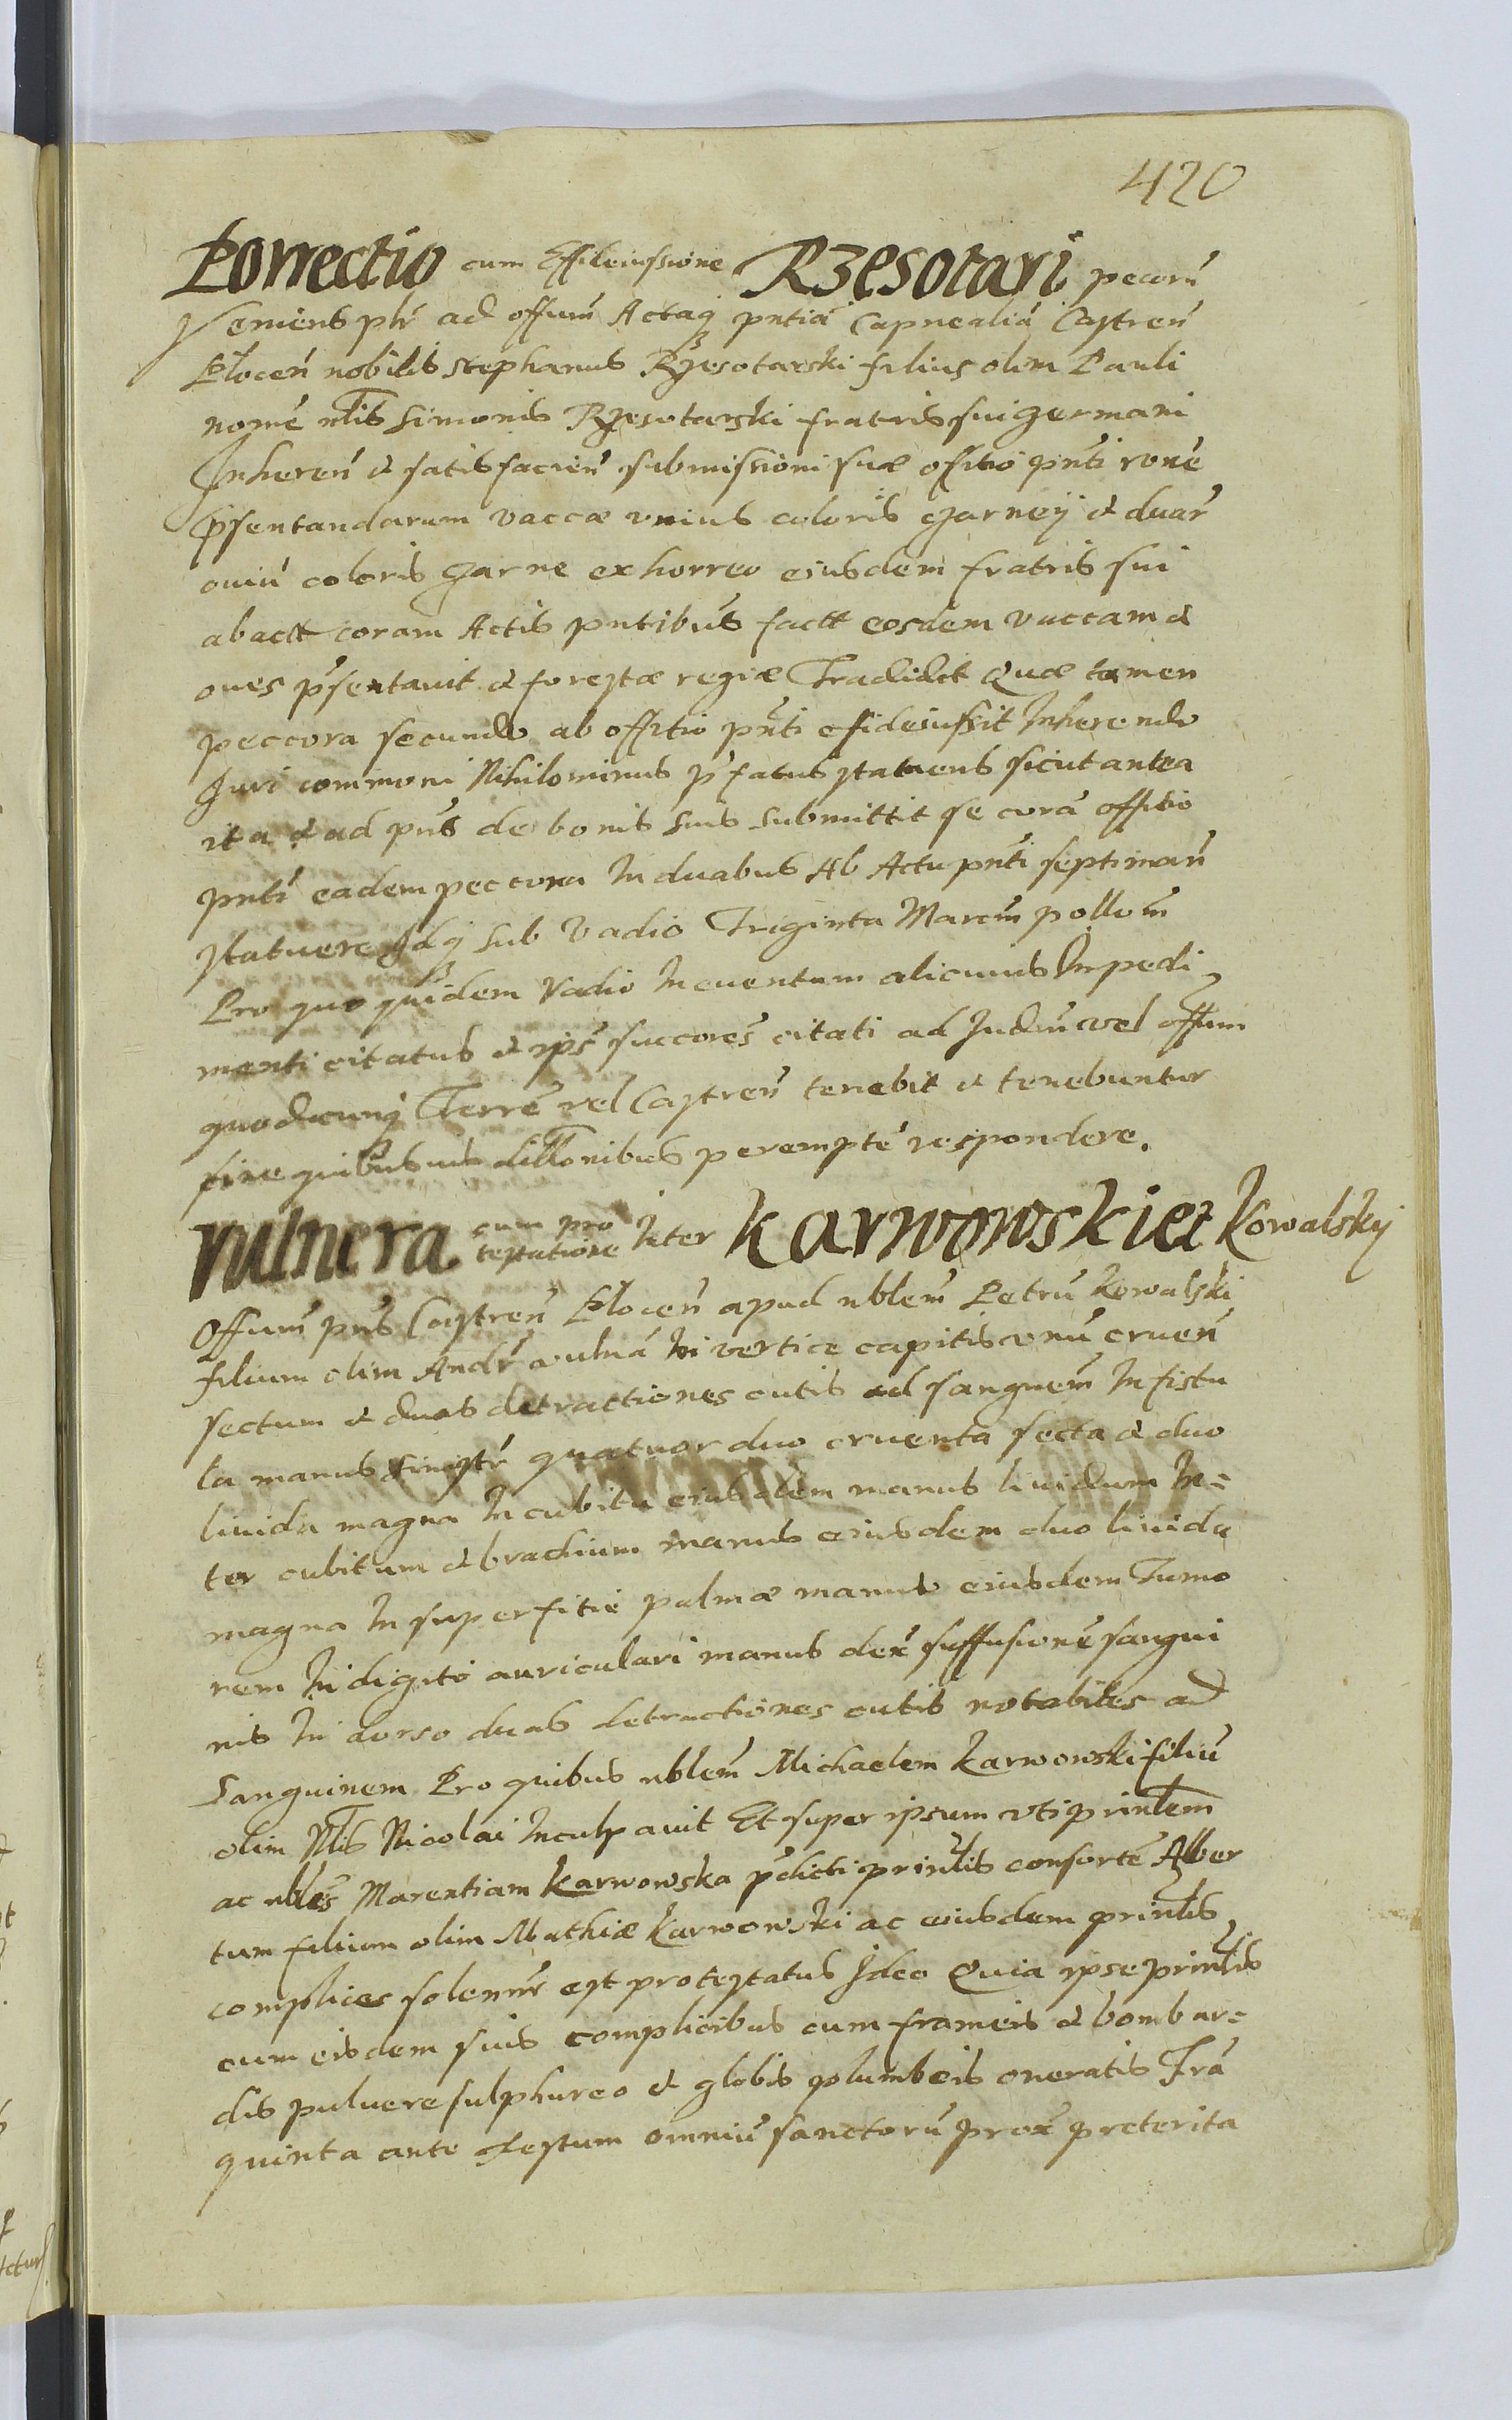 420
Porrectio cum Effideiussione Rzesotari pecorũ
Veniens plr ad offum Actaq pntia Capnealia Castren
Plocen nobilis Stephanus Rzesotarski filius olim Pauli
nome nlis Simonis Rzesotarski fratris sui germani
Inheren & satisfacien submissioni suæ offitio pnti rone
Psentandarum vaccæ unius coloris czarneÿ & duar
oviũ coloris czarne ex horreo eiusdem fratris sui
abactt coram Actis pntibus factt eosdem vaccam &
oves psentavit & forestæ regiæ Tradidit Quæ tamen
peccora secundo ab offitio pnti efideiussit Inherendo
Juri communi Nihilominus pfatus statuens sicut antea
ita & ad pns de bonis suis submittit se corã offitio
pnti eadem peccora In duabus Ab Actu pnti septiman
Statuere Idq sub Vadio Triginta Marcm pollom
Pro quo quidem Vadio In eventum alicuius Impedi
menti citatus & ips succores citati ad Judm vel offum
quodcunq Terre vel Castren tenebit & tenebuntur
sine quibusvis dillonibus perempte respondere.
vulnera cum pro testatione Inter Karwowski et Kowalsky
Offum pns Castren Plocen apud nblem Petrũ Kowalski
filium olim Andr vulna In vertice capitis unũ cruen
sectum & duas detractiones cutis ad sanguem In fistu
la manus sinistr quatuor duo cruenta secta & duo
livida magna In cubitu eiusdem manus lividum In=
ter cubitum & brachium manus eiusdem duo livida
magna In superfitie palmæ manus eiusdem Tumo
rem In digito auriculari manus dex suffusione sangui
nis In dorso duas detractiones cutis notabiles ad
Sanguinem Pro quibus nblem Michaelem Karwowski filiũ
olim Nlis Nicolai Inculpavit Et super ipsum uti prinlem
ac nbles Marentiam Karwowska pdicti prinlis consorte Alber
tum filium olim Mathiæ Karwowski ac eiusdem prinlis
complices solennr est protestatus Ideo Quia ipse prinlis
cum eisdem suis complicibus cum frameis & bombar=
dis pulvere sulphureo & globis plumbeis oneratis Fra
quinta ante Festum omniũ sanctorũ prox preterita